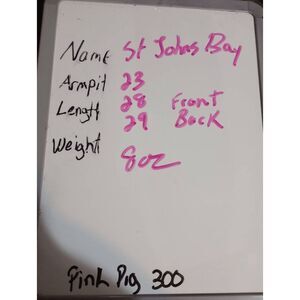 Name St Johns Bay
Armpit 23
Length 28 Front
29 Back
Weight 8oz
Pink Pig 300